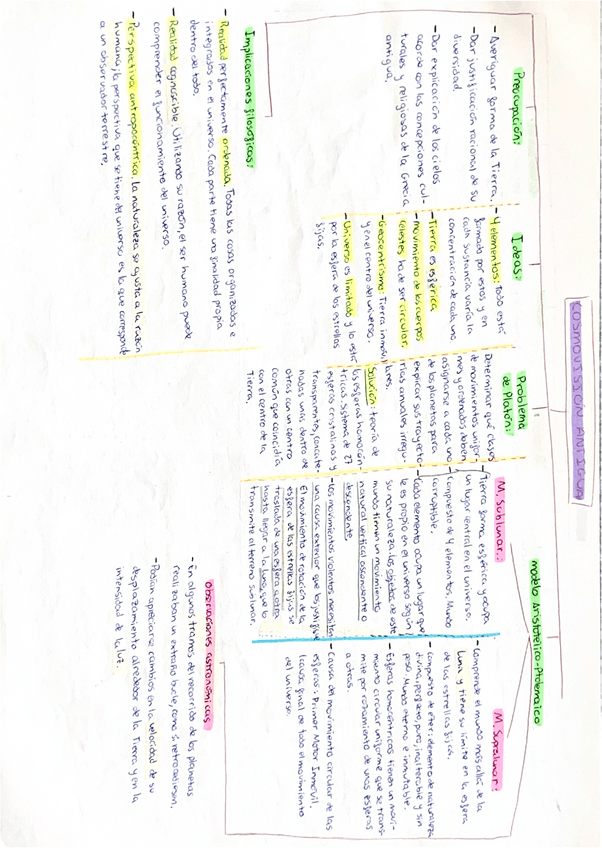 COSMOVISIÓN ANTIGUA
Preocupación:
- Averiguar forma de la Tierra.
- Dar justificación racional de su
diversidad.
- Dar explicación de los cielos
acorde con las concepciones cul-
turales y religiosas de la Grecia
antigua.
Ideas:
- 4 elementos: todo está
formado por estos y en
cada sustancia varía la
concentración de cada uno
- Tierra es esférica
- movimiento de los cuerpos
celestes ha de ser circular
- Geocentrismo: Tierra inmóvil
y en el centro del universo.
- Universo es limitado y lo está
por la esfera de las estrellas
fijas.
Problema
de Platón:
Determinar qué clases
de movimientos unifor-
mes y ordenados deben
asignarse a cada uno
de los planetas para
explicar sus trayecto-
rias anuales irregu-
lares.
Solución: teoría de
las esferas homocén-
tricas. Sistema de 27
esferas cristalinas y
transparentes, concate-
nadas unas dentro de
otras con un centro
común que coincidía
con el centro de la
Tierra.
modelo Aristotélico-Ptolemaico
M. Sublunar:
- Tierra forma esférica y ocupa
un lugar central en el universo.
- Compuesto de 4 elementos. Mundo
corruptible.
- Cada elemento ocupa un lugar que
le es propio en el universo según
su naturaleza. Los objetos de este
mundo tienen un movimiento
natural vertical ascendente o
descendente
- Los movimientos violentos necesitan
una causa exterior que los justifique
El movimiento de rotación de la
esfera de las estrellas fijas se
traslada de una esfera a otra
hasta llegar a la luna, que lo
transmite al terreno sublunar.
M. Supralunar:
- Comprende el mundo más allá de la
Luna y tiene su límite en la esfera
de las estrellas fijas.
- Compuesto de éter: elemento de naturaleza
divina, perfecto, puro, inalterable y sin
peso. Mundo eterno e inmutable.
- Esferas homocéntricas tienen un movi-
miento circular uniforme que se trans-
mite por rozamiento de unas esferas
a otras.
- Causa del movimiento circular de las
esferas: Primer Motor Inmóvil.
(causa final de todo el movimiento
del universo.
Implicaciones filosóficas:
- Realidad perfectamente ordenada. Todas las cosas organizadas e
integradas en el universo. Cada parte tiene una finalidad propia
dentro del todo.
- Realidad cognoscible. Utilizando su razón, el ser humano puede
comprender el funcionamiento del universo.
- Perspectiva antropocéntrica. la naturaleza se ajusta a la razón
humana; la perspectiva que se tiene del universo es la que corresponde
a un observador terrestre.
Observaciones astronómicas
- En algunos tramos del recorrido de los planetas
realizaban un extraño bucle, como si retrocediesen.
- Podían apreciarse cambios en la velocidad de su
desplazamiento alrededor de la Tierra y en la
intensidad de la luz.